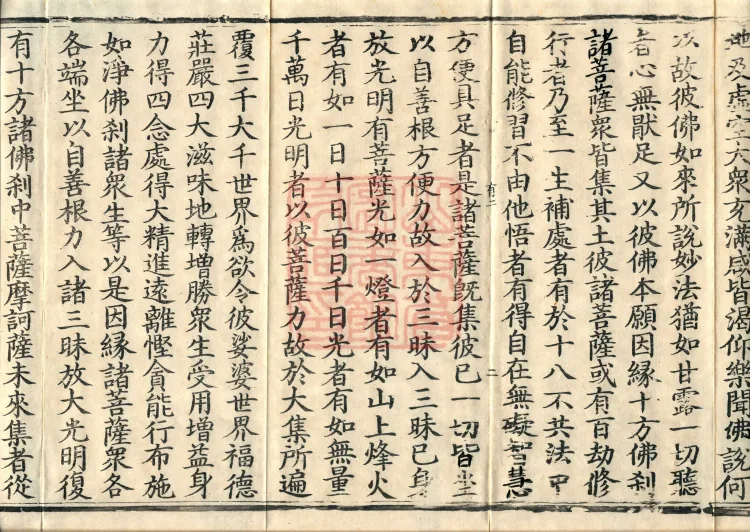 地及虛空大衆充滿咸皆渴仰樂聞佛說何
以故彼佛如來所說妙法猶如甘露一切聽
者心無猒足又以彼佛本願因緣十方佛刹
諸菩薩衆皆集其土彼諸菩薩或有百劫修
行者乃至一生補處者有於十八不共法中
自能修習不由他悟者有得自在無礙智慧
有二
二
方便具足者是諸菩薩旣集彼已一切皆坐
以自善根方便力故入於三昧入三昧已身
放光明有菩薩光如一燈者有如山上烽火
者有如一日十日百日千日光者有如無量
千萬日光明者以彼菩薩力故於大集所遍
覆三千大千世界爲欲令彼娑婆世界福德
莊嚴四大滋味地轉增勝衆生受用增益身
力得四念處得大精進遠離慳貪能行布施
如淨佛刹諸衆生等以是因緣諸菩薩衆各
各端坐以自善根力入諸三昧放大光明復
有十方諸佛刹中菩薩摩訶薩未來集者從